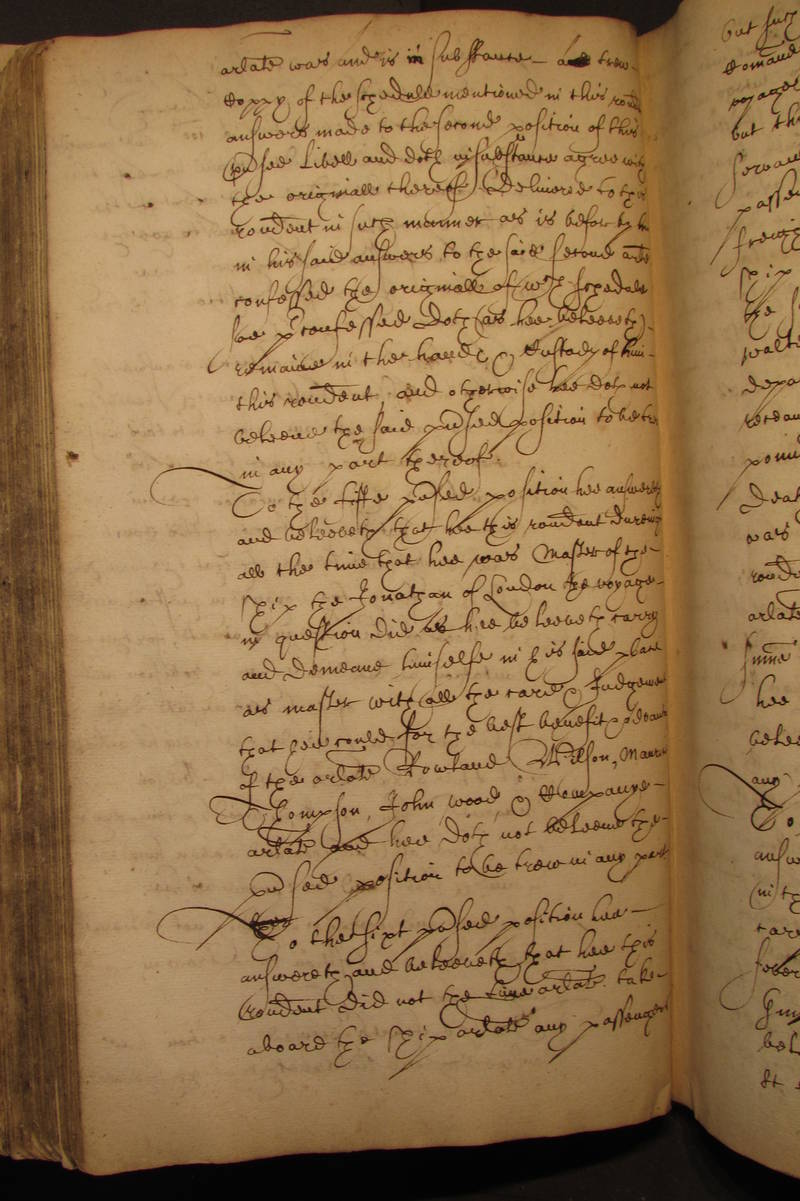 arlate was and is in substance a trew
Coppy of the scedule mentioned in this rondents
answers made to the second position of this
pnsed Libell and doth in substance agree with
the originall thereof Delivered to this
rondent in such manner as is before by him
in his said answers to the said second arle
confessed the originall of wch scedule
soe pconfessed doth (as hee beleeveth)
remaine in the hands & Custody of him
this rondent, and otherwise hee doth not
beleeve the said pnsed position to be true
in any part thereof.
To the fifte pnsed position hee answereth
and beleeveth that hee this rondent dureing
all the time that hee was Master of the
ship the Jonathan of London the voyage
in question did as hee beleeveth carry
and demeane himselfe in his said place
as master with all the care & Judgement
that hee could for the best benefit & advantage
of the arlate Rowland Wilson, Maurice
Thompson, John wood, & Companye
arlate and hee doth not beleeve the
pnsed position to be trew in any part
To the sixt pnsed position hee
answereth and beleeveth that hee this
rondent did not the time arlate take
aboard the ship arlate any passengers
but such
demand
voyage
but th
servan
passe
freig
ship
the s
walt
depa
was
arlate
hee
belee
any
To
answ
in th
care
bel